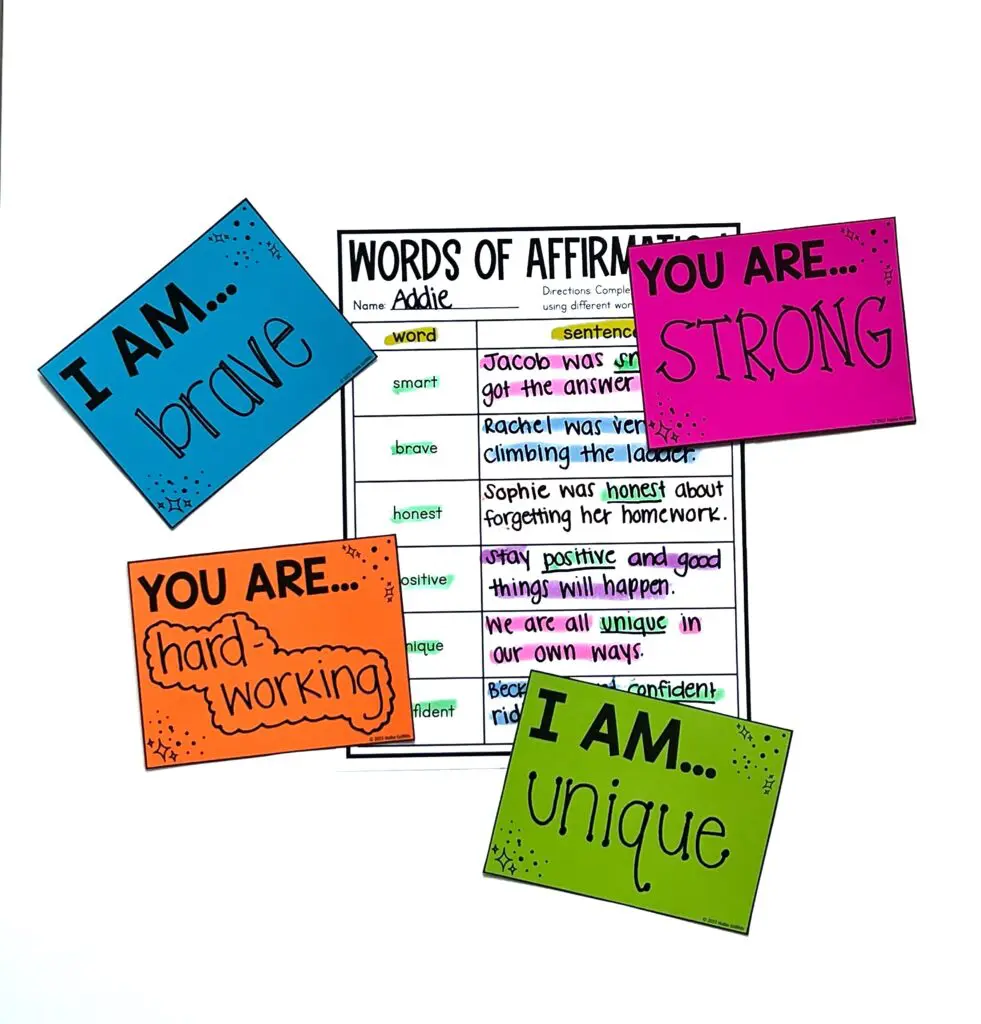 WORDS OF
Name: Addie
Directions:
using different
word
sentence
smart
Jacob was
got the answer
brave
Rachel was
climbing the ladder.
honest
Sophie was honest about
forgetting her homework.
Stay positive and good
things will happen.
We are all unique in
our own ways.
confident
I AM...
brave
YOU ARE...
STRONG
YOU ARE...
hard-
working
I AM...
unique